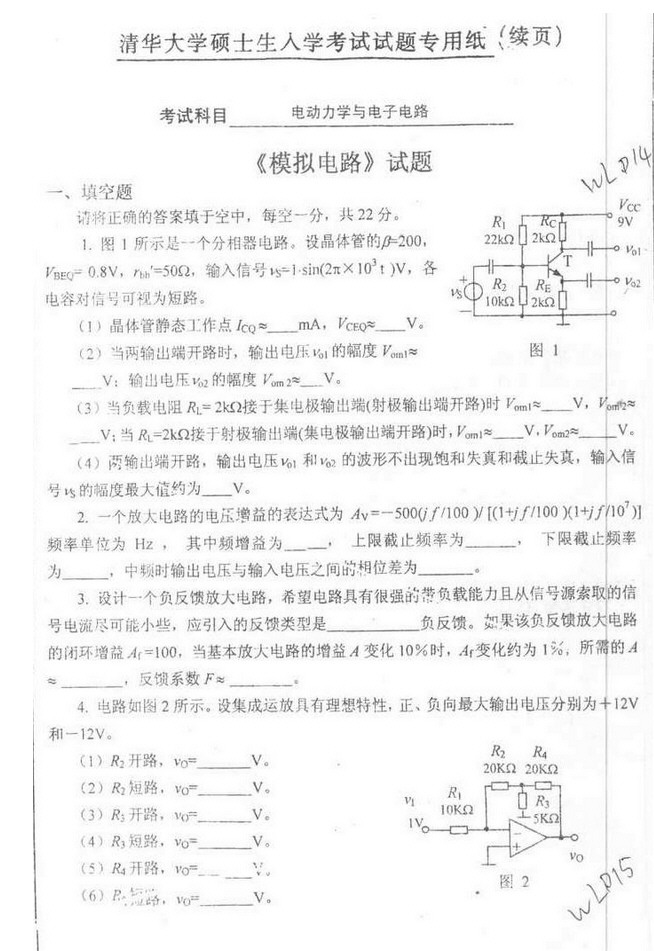 清华大学硕士生入学考试试题专用纸(续页)
考试科目 电动力学与电子电路
《模拟电路》试题
WLD14
一、填空题
请将正确的答案填于空中，每空一分，共 22 分。
1. 图 1 所示是一个分相器电路。设晶体管的β=200，
VBEQ= 0.8V，rbb'=50Ω，输入信号 vS=1·sin(2π×10³ t )V，各
电容对信号可视为短路。
(1) 晶体管静态工作点 ICQ≈____mA，VCEQ≈____V。
(2) 当两输出端开路时，输出电压 vo1 的幅度 Vom1≈
____V；输出电压 vo2 的幅度 Vom 2≈___V。
VCC
9V
R1
22kΩ
RC
2kΩ
vo1
T
vS
+
R2
10kΩ
RE
2kΩ
vo2
图 1
(3) 当负载电阻 RL= 2kΩ接于集电极输出端(射极输出端开路)时 Vom1≈____V，Vom2≈
____V；当 RL=2kΩ接于射极输出端(集电极输出端开路)时，Vom1≈____V，Vom2≈_____V。
(4) 两输出端开路，输出电压 vo1 和 vo2 的波形不出现饱和失真和截止失真，输入信
号 vS 的幅度最大值约为____V。
2. 一个放大电路的电压增益的表达式为 AV=－500(j f /100 )/ [(1+jf /100 )(1+jf /10⁷ )]
频率单位为 Hz ， 其中频增益为______， 上限截止频率为_______， 下限截止频率
为______，中频时输出电压与输入电压之间的相位差为________。
3. 设计一个负反馈放大电路，希望电路具有很强的带负载能力且从信号源索取的信
号电流尽可能小些，应引入的反馈类型是____________负反馈。如果该负反馈放大电路
的闭环增益 Af =100，当基本放大电路的增益 A 变化 10％时，Af 变化约为 1％，所需的 A
≈ ________，反馈系数 F≈ ________。
4. 电路如图 2 所示。设集成运放具有理想特性，正、负向最大输出电压分别为＋12V
和－12V。
(1) R2 开路，vO=_______V。
(2) R2 短路，vO=_______V。
(3) R3 开路，vO=_______V。
(4) R3 短路，vO=_______V。
(5) R4 开路，vO=_______V。
(6) 短路，vO=_______V。
R2 R4
20KΩ 20KΩ
vI
1V
R1
10KΩ
R3
5KΩ
－
+
vO
图 2
WLD15